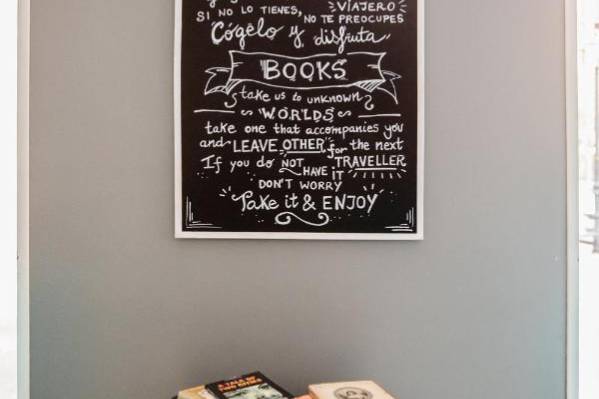 VIAJERO
SI NO LO TIENES, NO TE PREOCUPES
Cógelo y disfruta
BOOKS
take us to unknown
WORLDS
take one that accompanies you
and LEAVE OTHER for the next
If you do NOT HAVE IT TRAVELLER
DON'T WORRY
Take it & ENJOY
A TALE OF
TWO CITIES